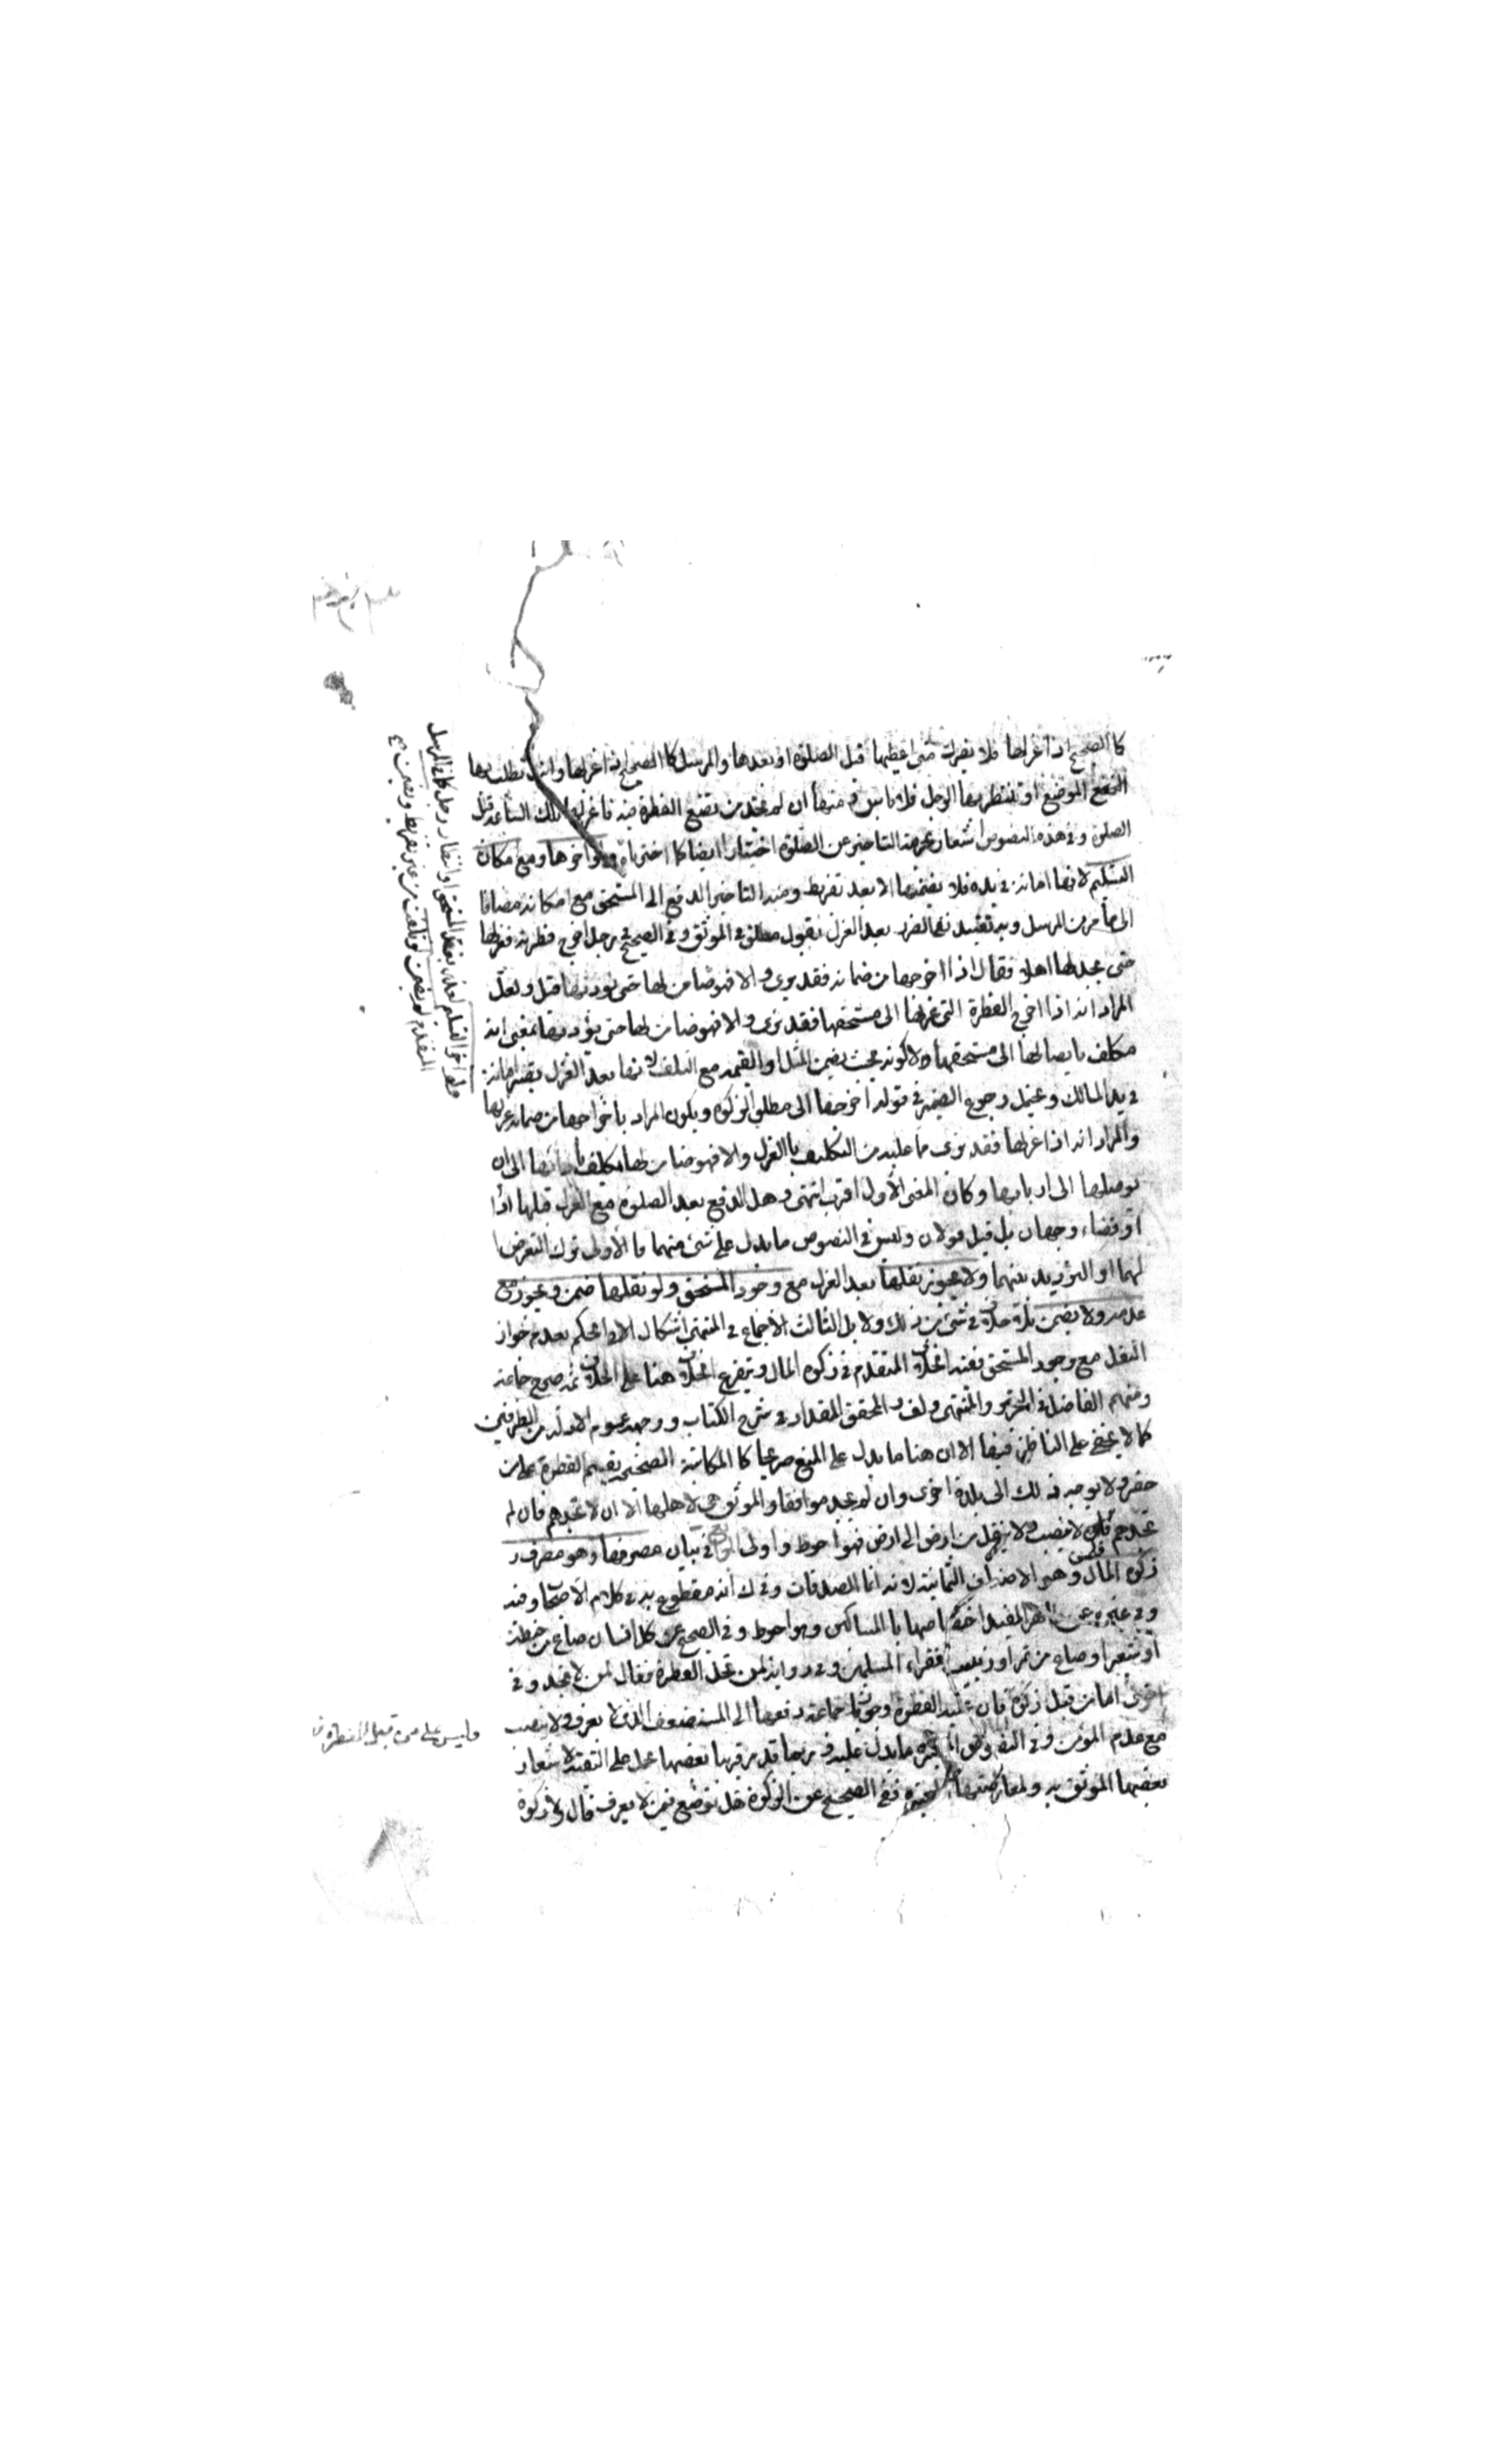 كالصحيح اذا عزلها فلا يضرك متى اعطيتها قبل الصلوة او بعدها والمرسل كالصحيح اذا عزلها وانت تطلب بها
الموضع او تنتظر بها الرجل فلا باس و منها ان لم تجد من تضع الفطرة فيه فاعزلها تلك الساعة قبل
الصلوة وفي هذه النصوص اشعار بحرمة التاخير عن الصلوة اختيارا ايضا كما اخترناه ولو اخرها ومع مكان
التسليم لانها امانة في يده فلا يضمنها الا بعد تفريط ومنه التاخير الدفع الى المستحق مع امكانه مضافا
الى ما مر من المرسل وبه تقييد نفي الضرر بعد العزل بقول مطلق في الموثق وفي الصحيح في رجل اخرج فطرته فعزلها
حتى يجد لها اهلا فقال اذا اخرجها من ضمانه فقد برئ والا فهو ضامن لها حتى يوديها قيل ولعل
المراد انه اذا اخرج الفطرة التي عزلها الى مستحقها فقد برئ والا فهو ضامن لها حتى يؤديها بمعنى انه
مكلف بايصالها الى مستحقها لا كونه بحيث يضمن المثل او القيمة مع التلف لانها بعد العزل يصير امانة
في يد المالك ويحتمل رجوع الضمير في قوله اخرجها الى مطلق الزكوة ويكون المراد باخراجها من ضمانه عزلها
والمراد انه اذا عزلها فقد برئ مما عليه من التكليف بالعزل والا فهو ضامن لها مكلف الى ان
يوصلها الى اربابها وكان المعنى الأول اقرب انتهى وهل الدفع بعد الصلوة مع العزل قبلها اداء
او قضاء وجهان بل قيل قولان وليس في النصوص ما يدل على شئ منهما فالأولى ترك التعرض
لهما او الترديد بينهما ولا يجوز نقلها بعد العزل مع وجود المستحق ولو نقلها ضمن ويجوز مع
عدمه ولا يضمن بلا خلاف في شئ من ذلك ولا بل الثالث الاجماع في المنتهى اشكال الا في الحكم بعدم جواز
النقل مع وجود المستحق ففيه الخلاف المتقدم في زكوة المال ويتفرع الخلاف هنا على الخلاف ثمه صرح جماعة
ومنهم الفاضل في التحرير والمنتهى ولف والمحقق المقداد في شرح الكتاب ووجهه عموم الادلة من الطرفين
كما لا يخفى على الناظر فيها الا ان هنا ما يدل على المنع صريحا كالمكاتبة الصحيحة يقسم الفطرة على من
حضر ولا يوجه ذلك الى بلدة اخرى وان لم يجد موافقا والموثق هي لاهلها الا ان لا تجدهم فان لم
تجدهم فلمن لا ينصب ولا ينقل من ارض الى ارض فهو احوط واولى في بيان مصرفها وهو مصرف
زكوة المال وهو الاصناف الثمانية لاية انما الصدقات وفي ك انه مقطوع به في كلام الاصحاب وفيه
وفي غيره عن ظاهر المفيد اختصاصها بالمساكين وهو احوط وفي الصحيح عن كل انسان صاع من حنطة
او شعير او صاع من تمر او زبيب لفقراء المسلمين وفي رواية لمن تحل الفطرة فقال لمن لا يجد وفي
اخرى اما من قبل زكوة فان عليه الفطرة وجوز جماعة دفعها الى المستضعف الذي لا يعرف ولا ينصب
مع عدم المؤمن وفي النصوص الكثيرة ما يدل عليه وربما قدمر قربها بعضها حمل على التقية لاشعار
بعضها الموثق به ولمعارضتها الكثيرة ففي الصحيح عن الزكوة هل توضع فيمن لا يعرف قال لا ولا زكوة
ولو اخر التسليم لعذر بفقد المستحق او انتظار رجل كما في المرسل
المتقدم لم يضمن لو تلفت من غير تفريط ويضمن معه
وليس على من قبل الفطرة